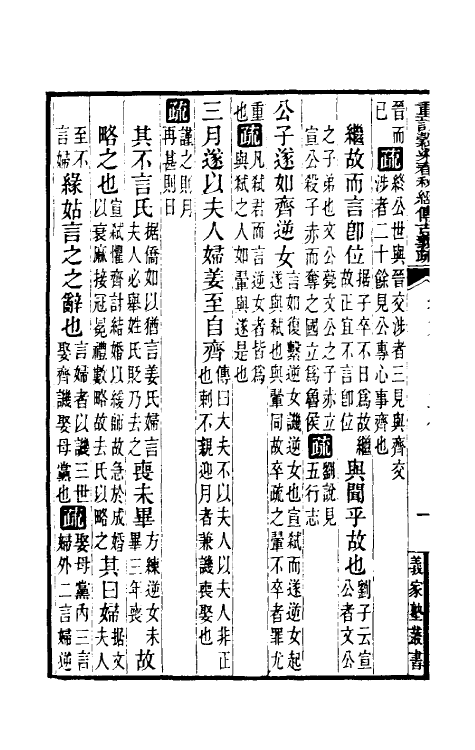 重訂穀梁春秋經傳古義疏
一
義家塾叢書
晉而已疏終公世與晉交涉者三見與齊交涉者二十餘見公專心事齊也
繼故而言卽位據子卒不日爲故繼故正宜不言卽位與聞乎故也劉子云宣公者文公
之子弟也文公薨文公之子赤立宣公殺子赤而奪之國立爲魯侯疏劉說見五行志
公子遂如齊逆女言如復繫逆女譏逆女也宣弒而遂逆女起遂與弒也與翬同故卒疏之翬不卒者罪尤
重也疏凡弒君而言逆女者皆爲與弒之人如翬與遂是也
三月遂以夫人婦姜至自齊傳曰大夫不以夫人以夫人非正也刺不親迎月者兼譏喪娶也
疏謹之則月再甚則日
其不言氏据僑如以猶言姜氏婦言夫人必舉姓氏貶乃去之喪未畢方練逆女未畢三年喪故
略之也宣弒懼齊討結婚以緩師故急於成婚以衰麻接冠冕禮數略故去氏以略之其曰婦据文夫人
至不言婦緣姑言之之辭也言婦者以譏三世娶齊譏娶母黨也疏娶母黨內三言婦外二言婦逆